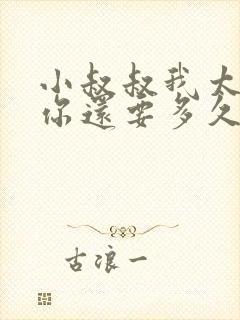 小叔叔我太
你還要多久
古浪一